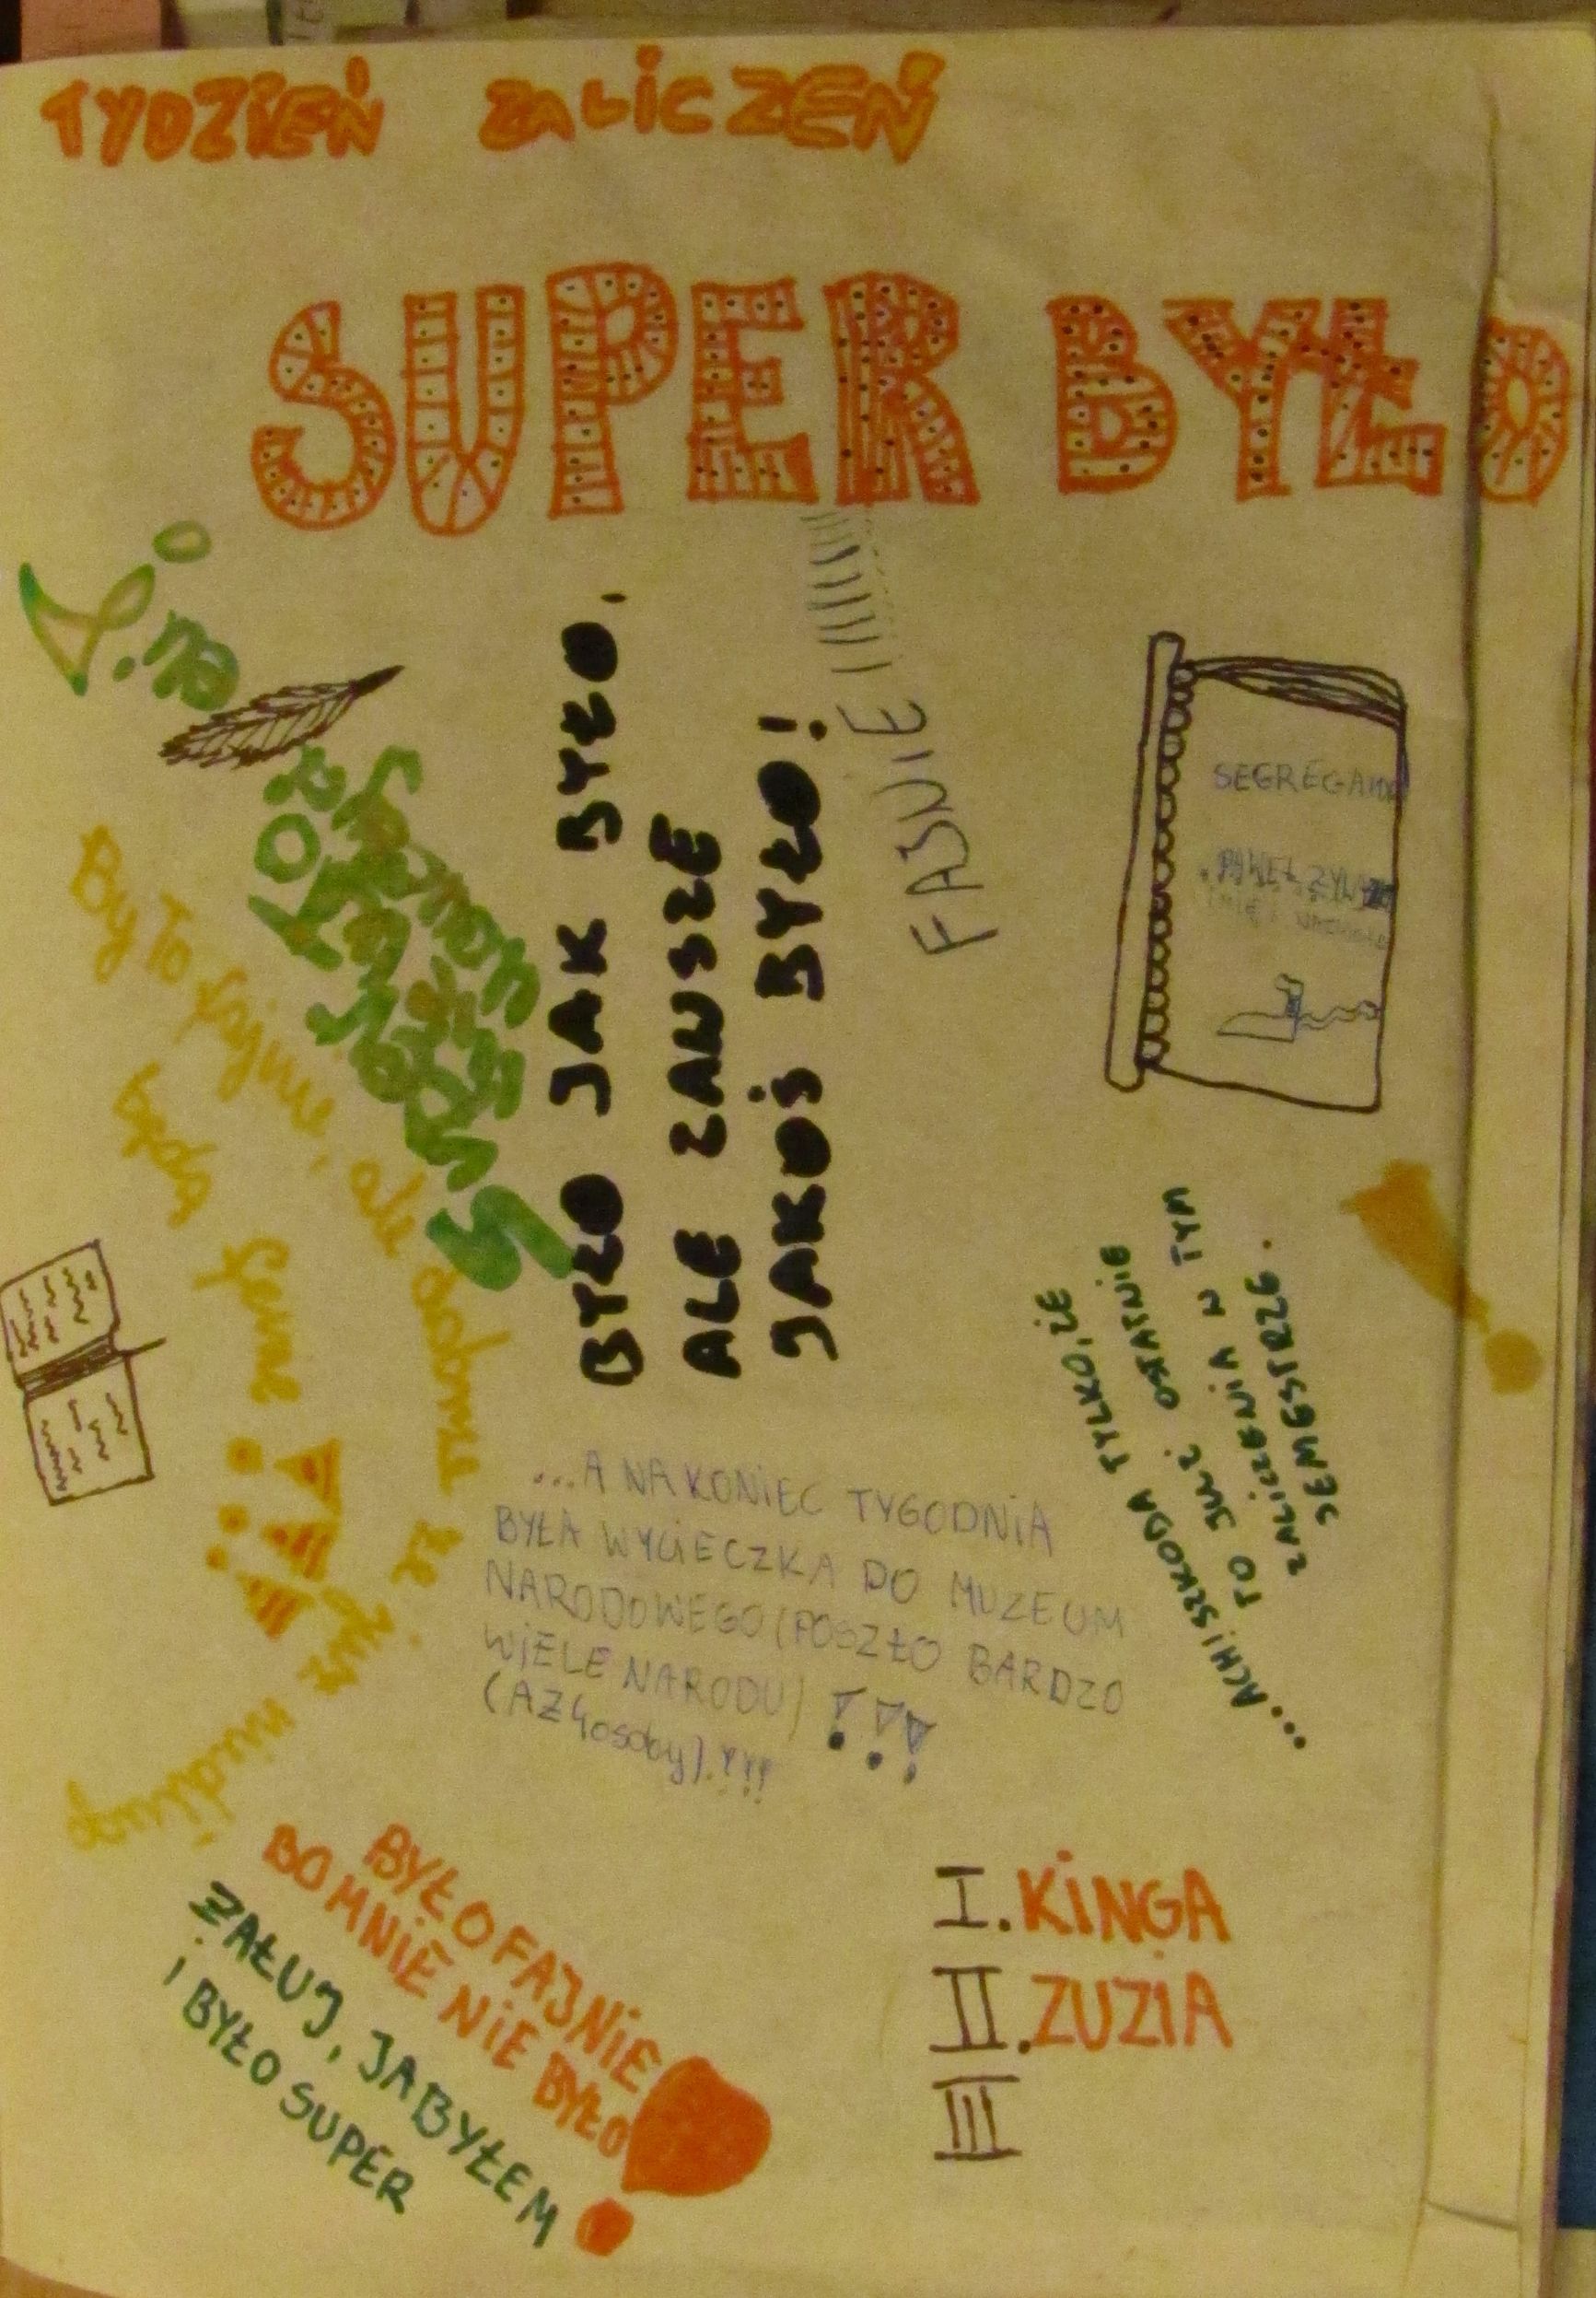 TYDZIEŃ ZALICZEŃ
SUPER BYŁO
BYŁO JAK BYŁO,
ALE ZAWSZE
JAKOŚ BYŁO!
FAJNIE !!!!!!!!
SEGREGATOR
PAWEŁ
By To fajnie, ale dobrze że już
niedługo
będą ferie !!!
...ACH! SZKODA TYLKO, ŻE
TO JUŻ OSTATNIE
ZALICZENIA W TYM
SEMESTRZE.
...A NA KONIEC TYGODNIA
BYŁA WYCIECZKA DO MUZEUM
NARODOWEGO (POSZŁO BARDZO
WIELE NARODU) !!!
(AŻ 4 osoby).!!!
BYŁO FAJNIE
BO MNIE NIE BYŁO!
ŻAŁUJ, JA BYŁEM
i BYŁO SUPER
I. KINGA
II. ZUZIA
III